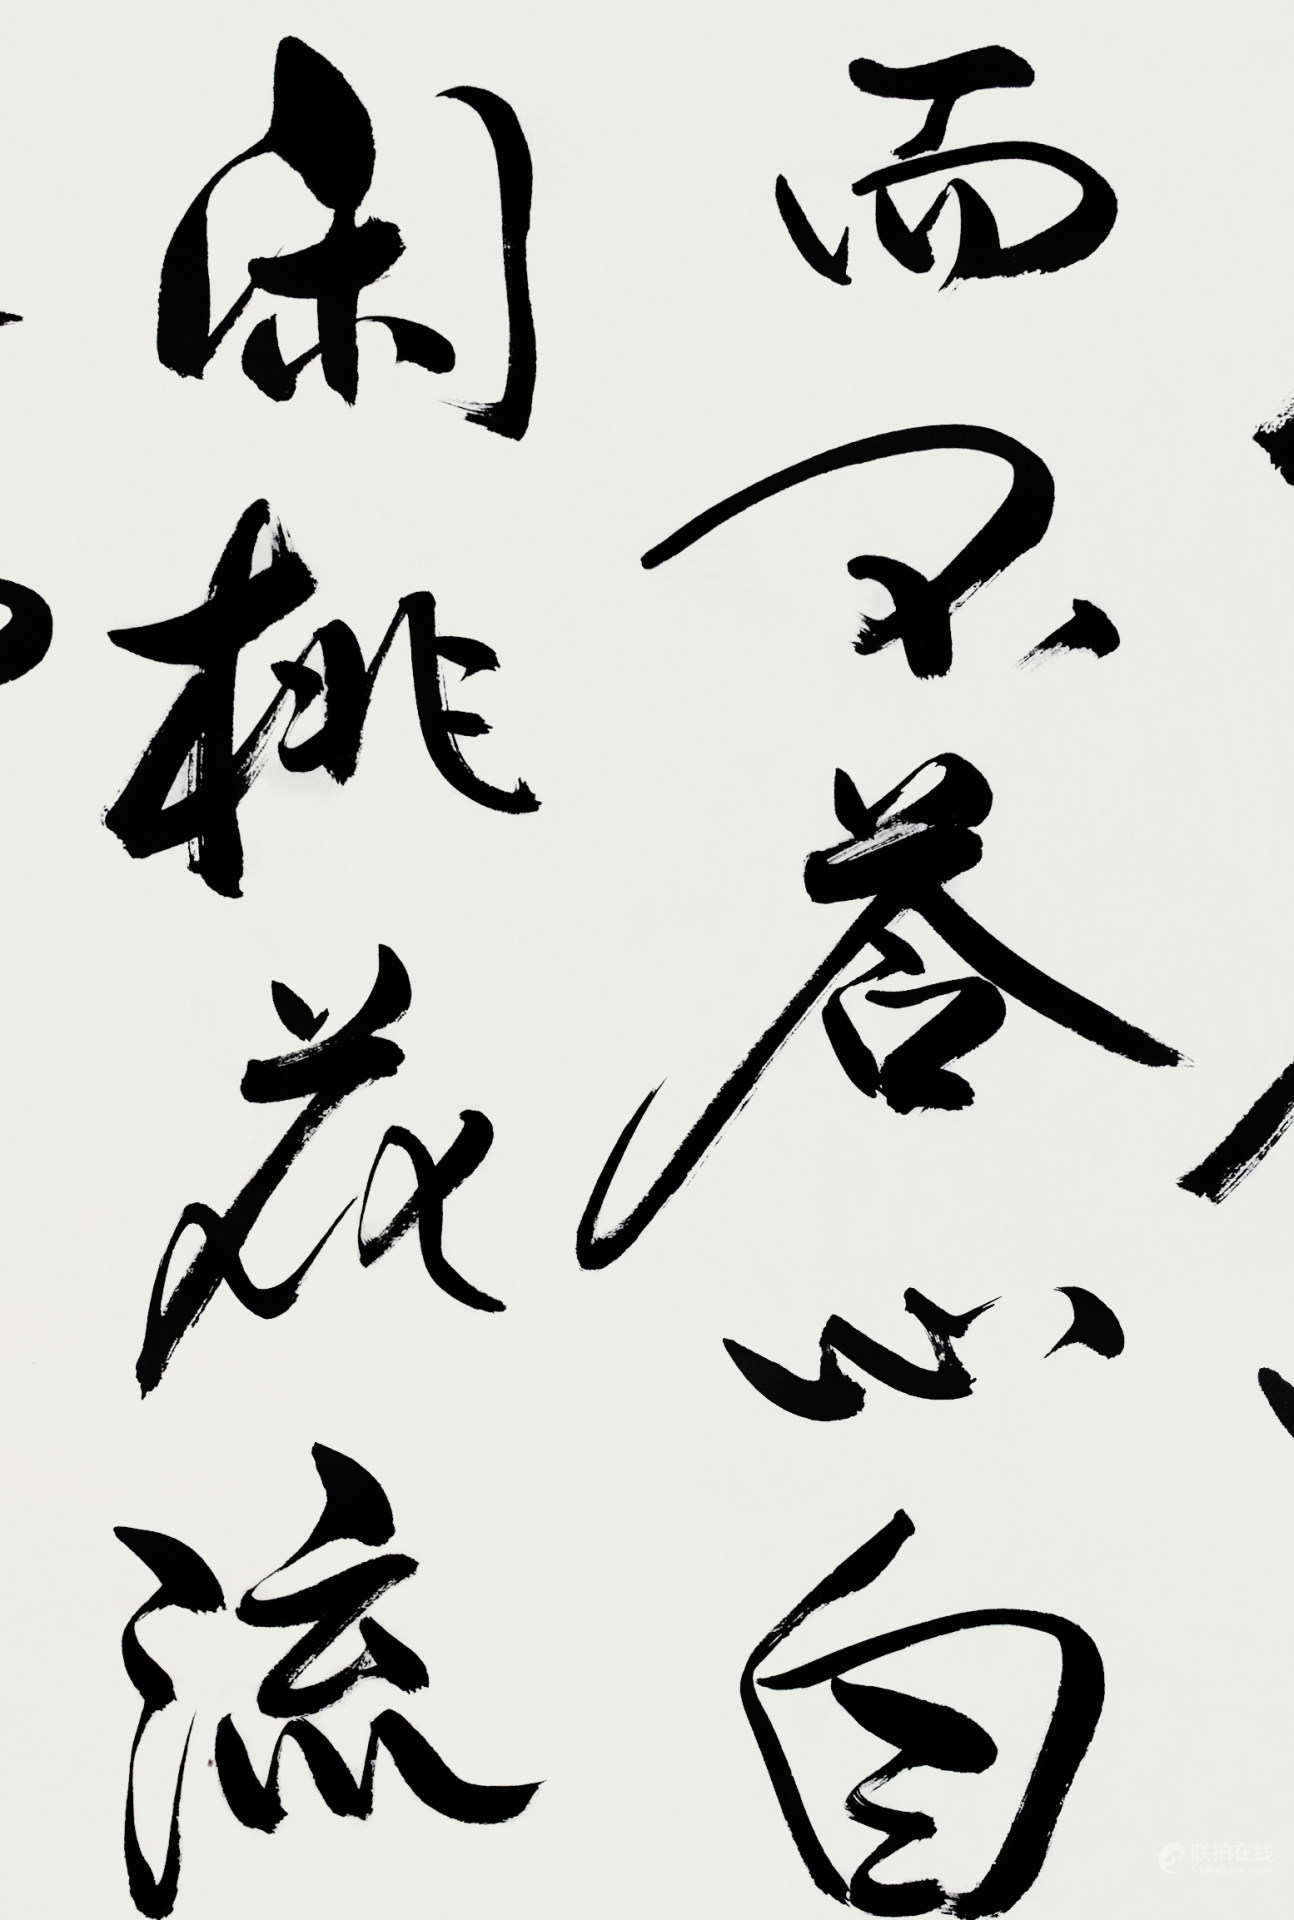 而不答心自
闲桃花流
联拍在线